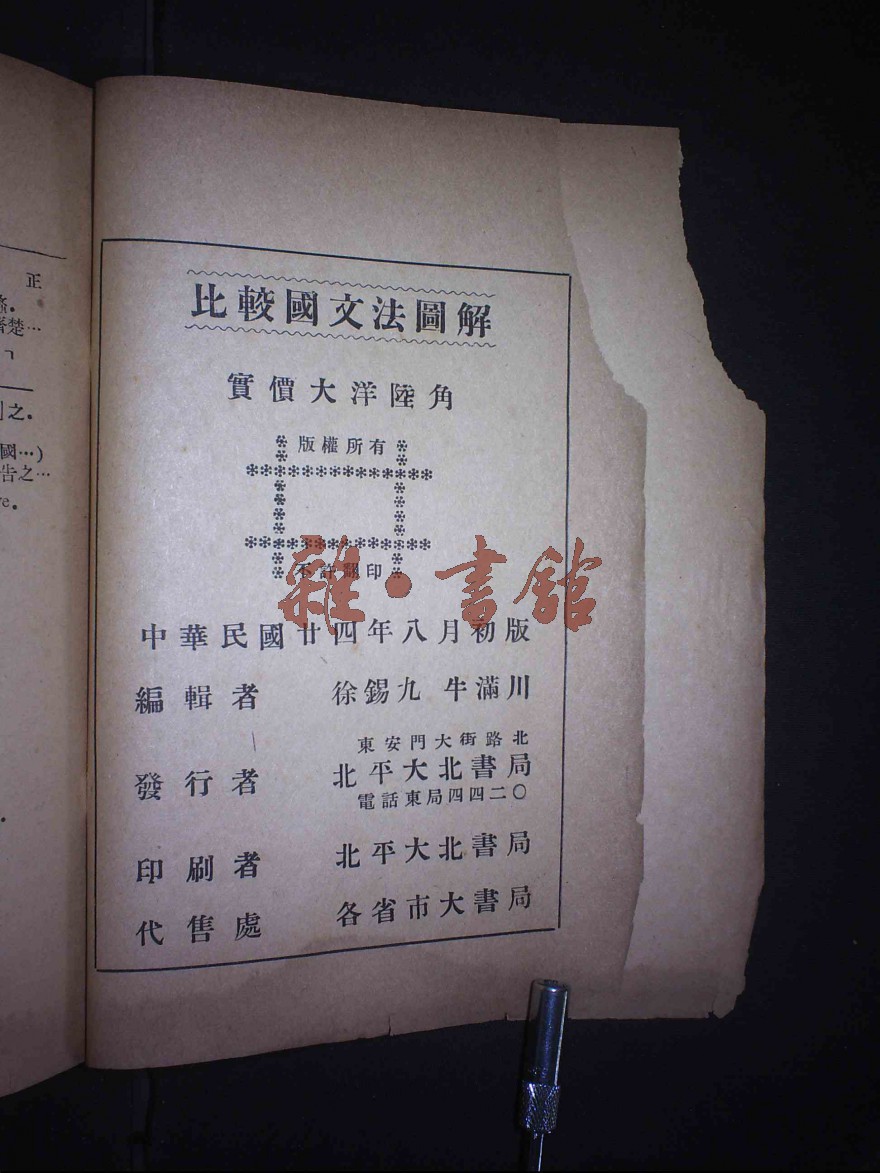 正
楚…
之。
國…)
告之…
比較國文法圖解
實價大洋陸角
版權所有
不許翻印
雜·書館
中華民國廿四年八月初版
編輯者 徐錫九 牛滿川
東安門大街路北
發行者 北平大北書局
電話東局四四二〇
印刷者 北平大北書局
代售處 各省市大書局